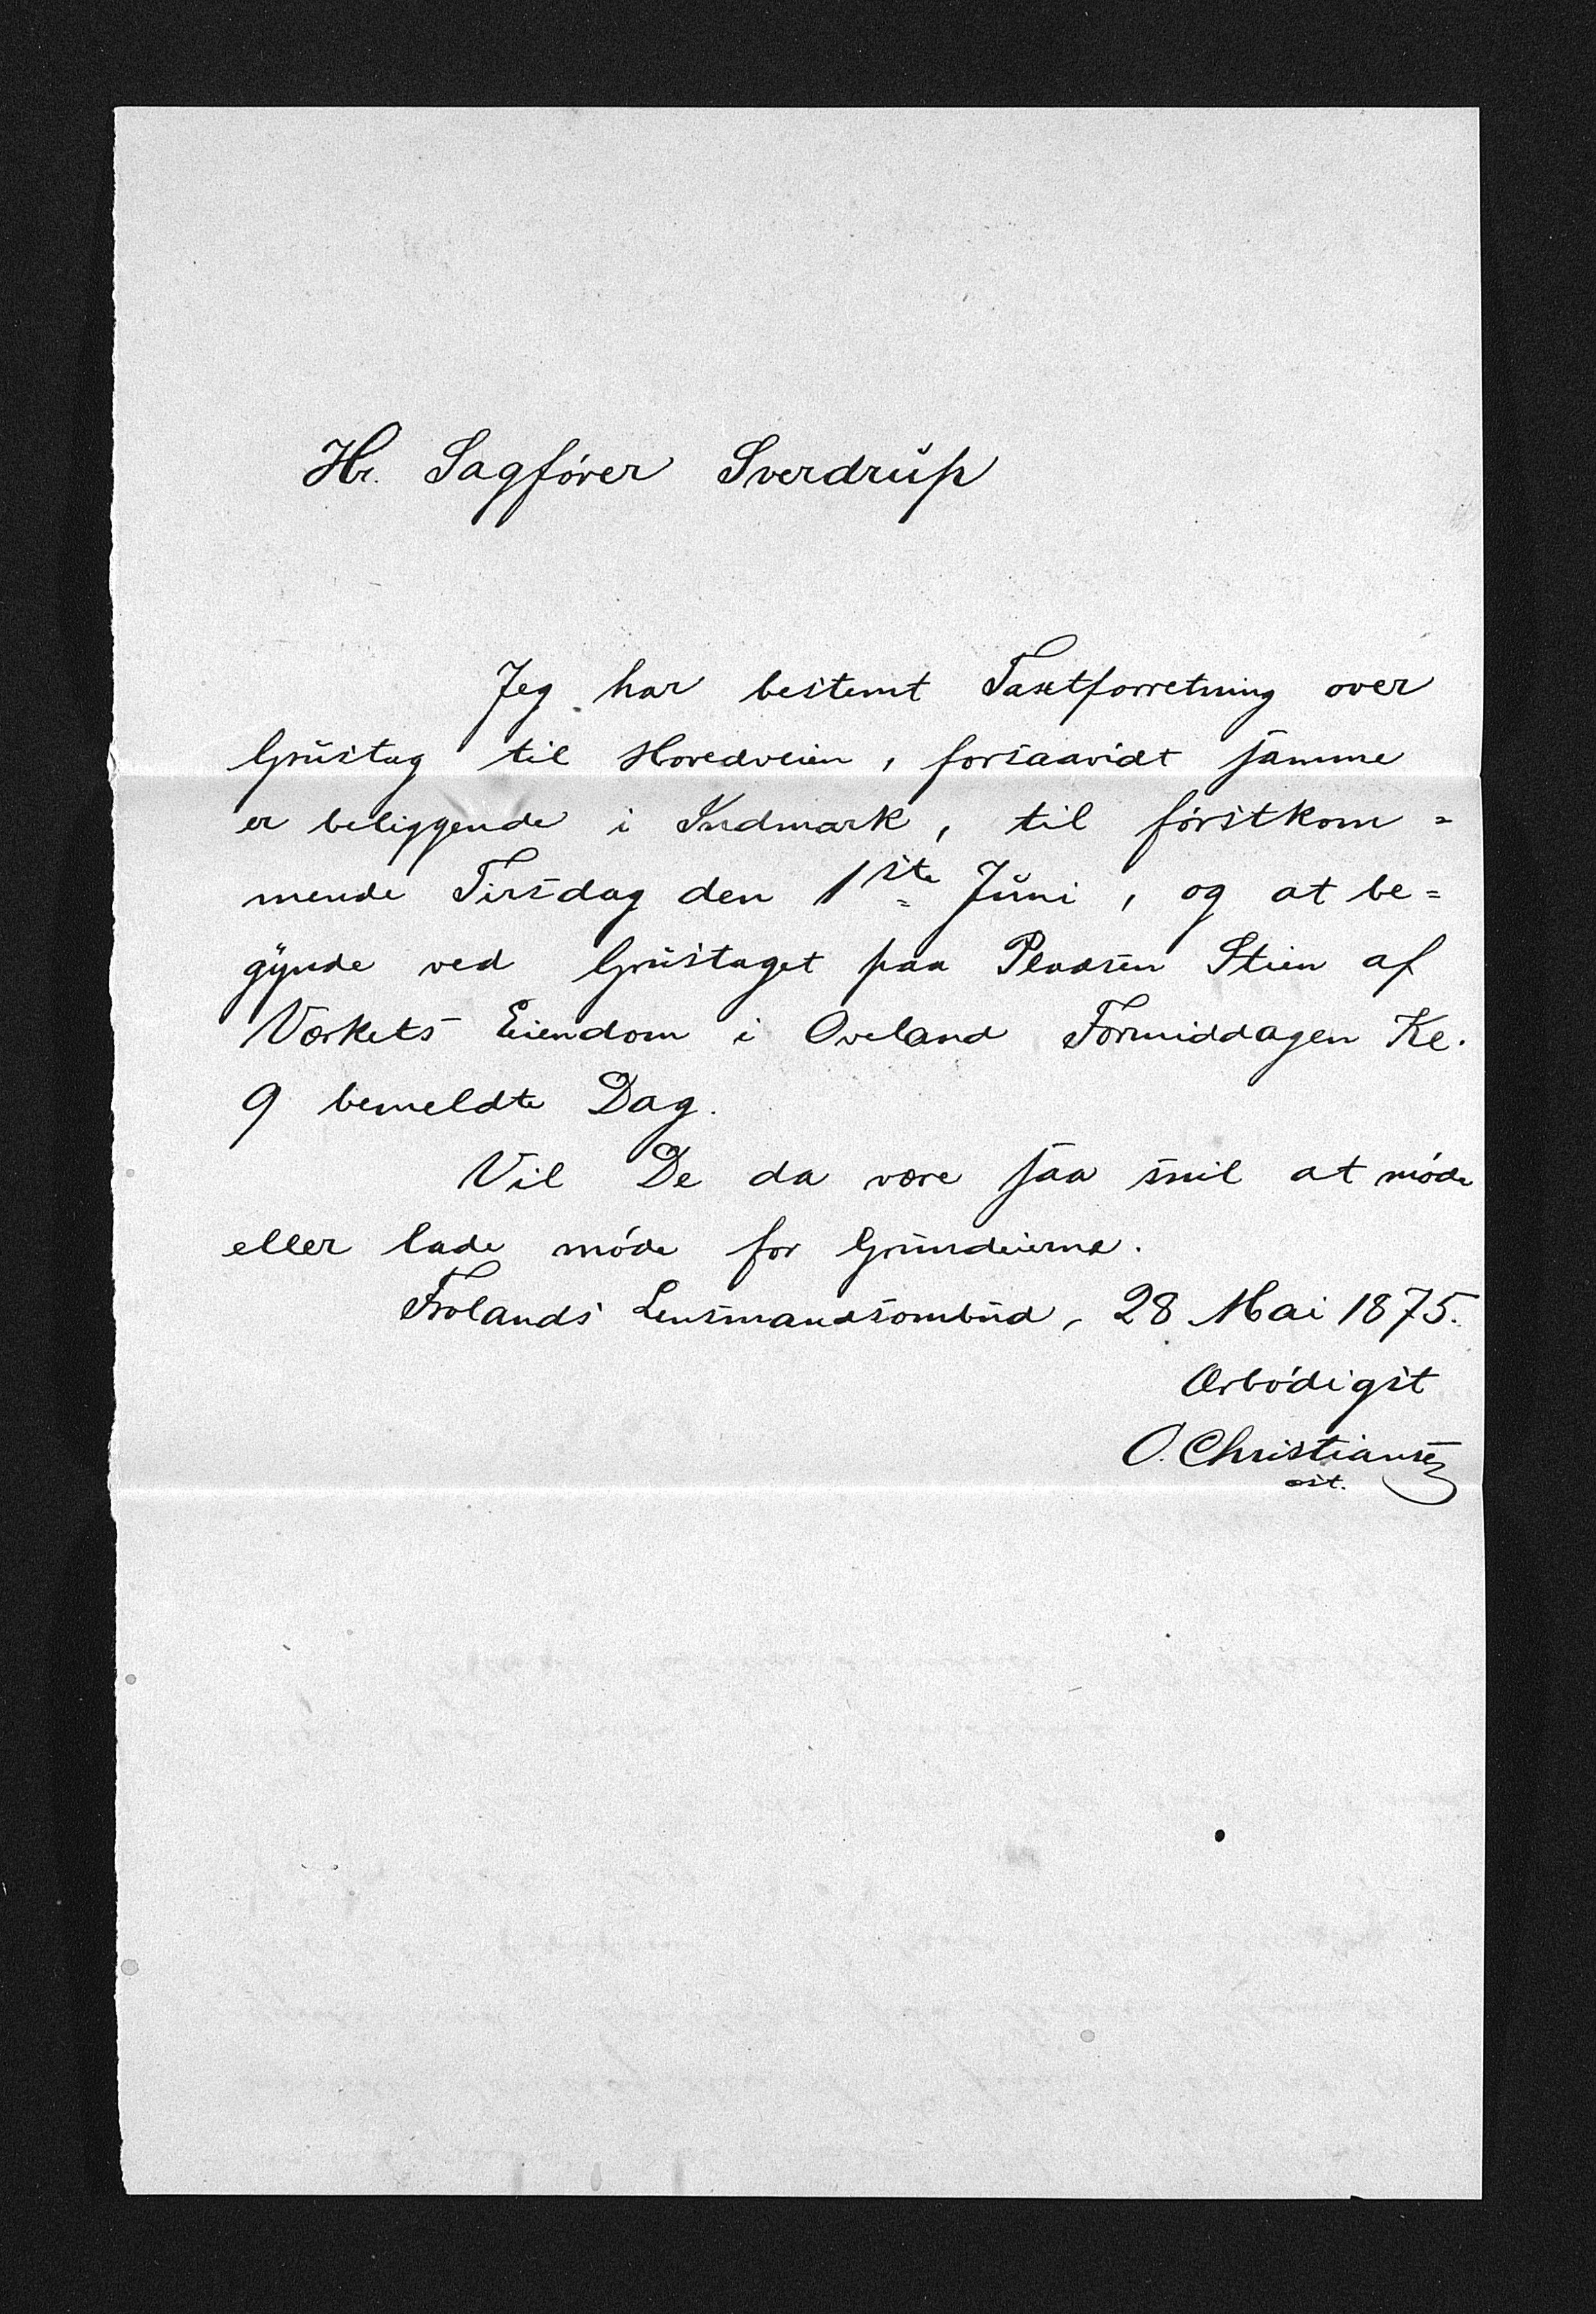 Hr. Sagfører Sverdrup
Jeg har bestemt Taxtforretning over
Grustag til Hovedveien, forsaavidt samme
er beliggende i Indmark, til førstkom=
mende Tirsdag den 1ste Juni, og at be=
gynde ved Grustaget paa Pladsen Stien af
Værkets Eiendom i Oveland Formiddagen Kl.
9 bemeldte Dag.
Vil De da være saa snil at møde
eller lade møde for Grundeierne.
Frolands Lensmandsombud, 28 Mai 1875.
Ærbødigst
O. Christiansen
cst.